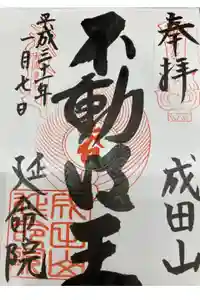 奉拝
成田山
不動明王
平成三十一年
一月七日
延命院